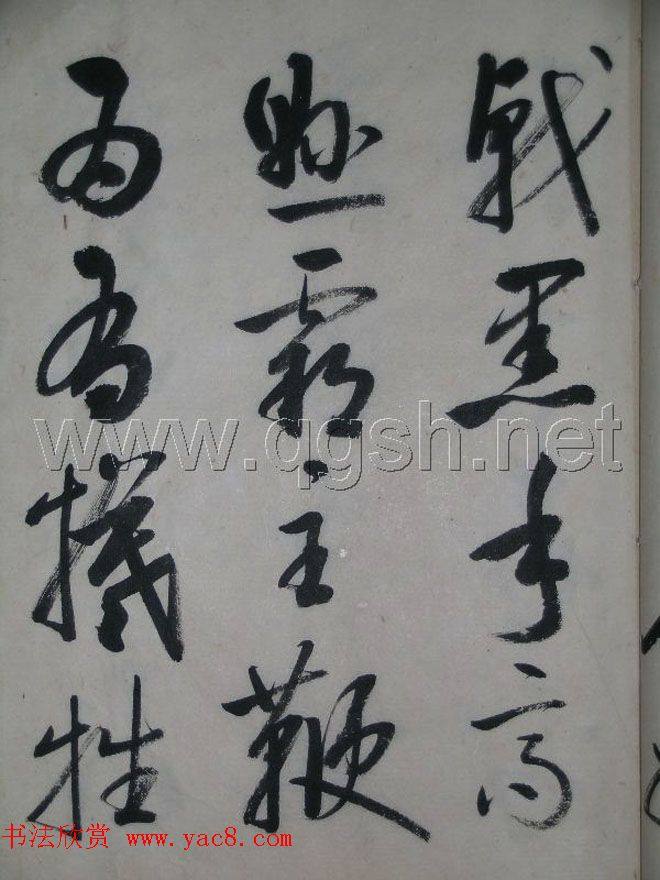 戟黑手高
悬霸主鞭
为有犠牲
www.qgsh.net
书法欣赏 www.yac8.com